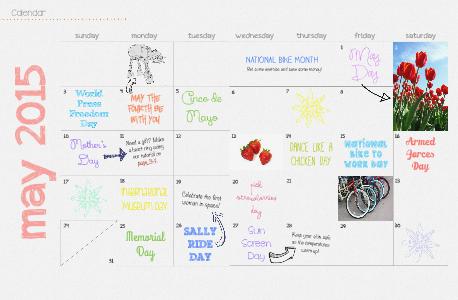 Calendar
may 2015
sunday monday tuesday wednesday thursday friday saturday
NATIONAL BIKE MONTH
Get some exercise and save some money!
1
May
Day
2
3
World
Press
Freedom
Day
4
MAY THE
FOURTH BE
WITH YOU
5
Cinco de
Mayo
6
7
8
9
10
Mother's
Day
11
Need a gift? Make
a heart ring using
our tutorial on
12
13
14
DANCE LIKE A
CHICKEN DAY
15
NATIONAL
BIKE TO
WORK DAY
16
Armed
Forces
Day
17
18
INTERNATIONAL
MUSEUM DAY
19
Celebrate the first
woman in space!
20
pick
strawberries
day
21
22
23
24
31
25
Memorial
Day
26
SALLY
RIDE
DAY
27
Sun
Screen
Day
28
Keep your skin safe
as the temperatures
warm up!
29
30